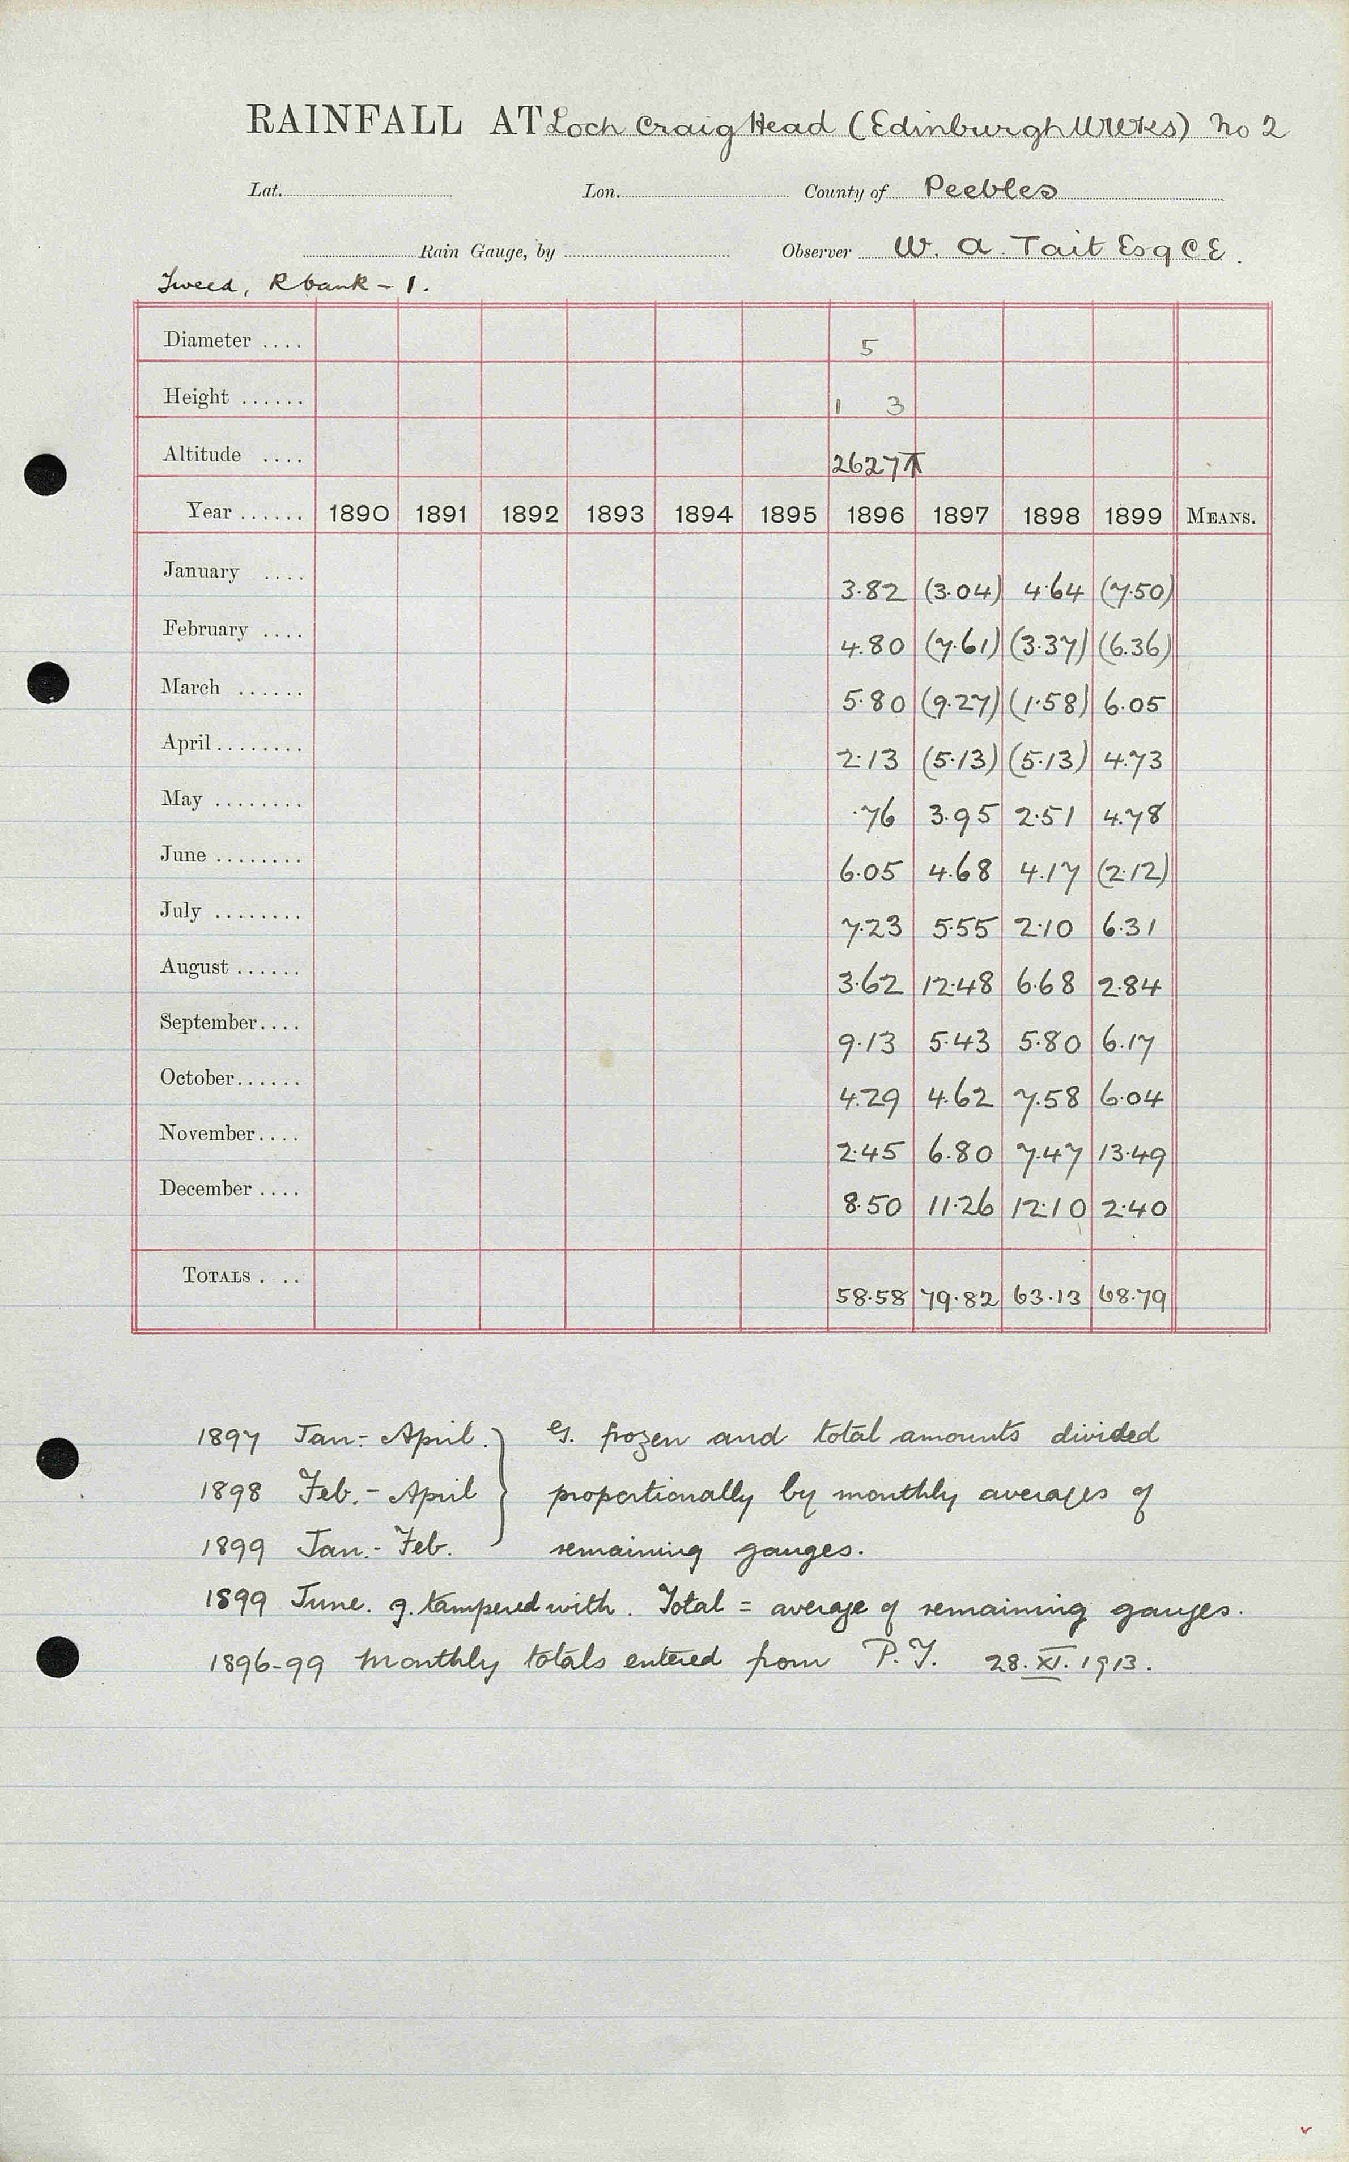 RAINFALL AT Loch Craig Head (Edinburgh WWks) No 2
Lat. Lon. County of Peebles
Rain Gauge, by Observer W. A. Tait Esq C E.
Tweed, R bank - 1.
Diameter .... 5
Height ...... 1 3
Altitude .... 2627
Year ...... 1890 1891 1892 1893 1894 1895 1896 1897 1898 1899 MEANS.
January .... 3.82 (3.04) 4.64 (7.50)
February .... 4.80 (7.61) (3.37) (6.36)
March ...... 5.80 (9.27) (1.58) 6.05
April ........ 2.13 (5.13) (5.13) 4.73
May ........ .76 3.95 2.51 4.78
June ........ 6.05 4.68 4.17 (2.12)
July ........ 7.23 5.55 2.10 6.31
August ...... 3.62 12.48 6.68 2.84
September.... 9.13 5.43 5.80 6.17
October...... 4.29 4.62 7.58 6.04
November.... 2.45 6.80 7.47 13.49
December .... 8.50 11.26 12.10 2.40
TOTALS . .. 58.58 79.82 63.13 68.79
1897 Jan:- April. } gs. frozen and total amounts divided
1898 Feb.- April } proportionally by monthly averages of
1899 Jan.- Feb. } remaining gauges.
1899 June. g. tampered with. Total = average of remaining gauges.
1896-99 Monthly totals entered from P.T. 28.XI.1913.